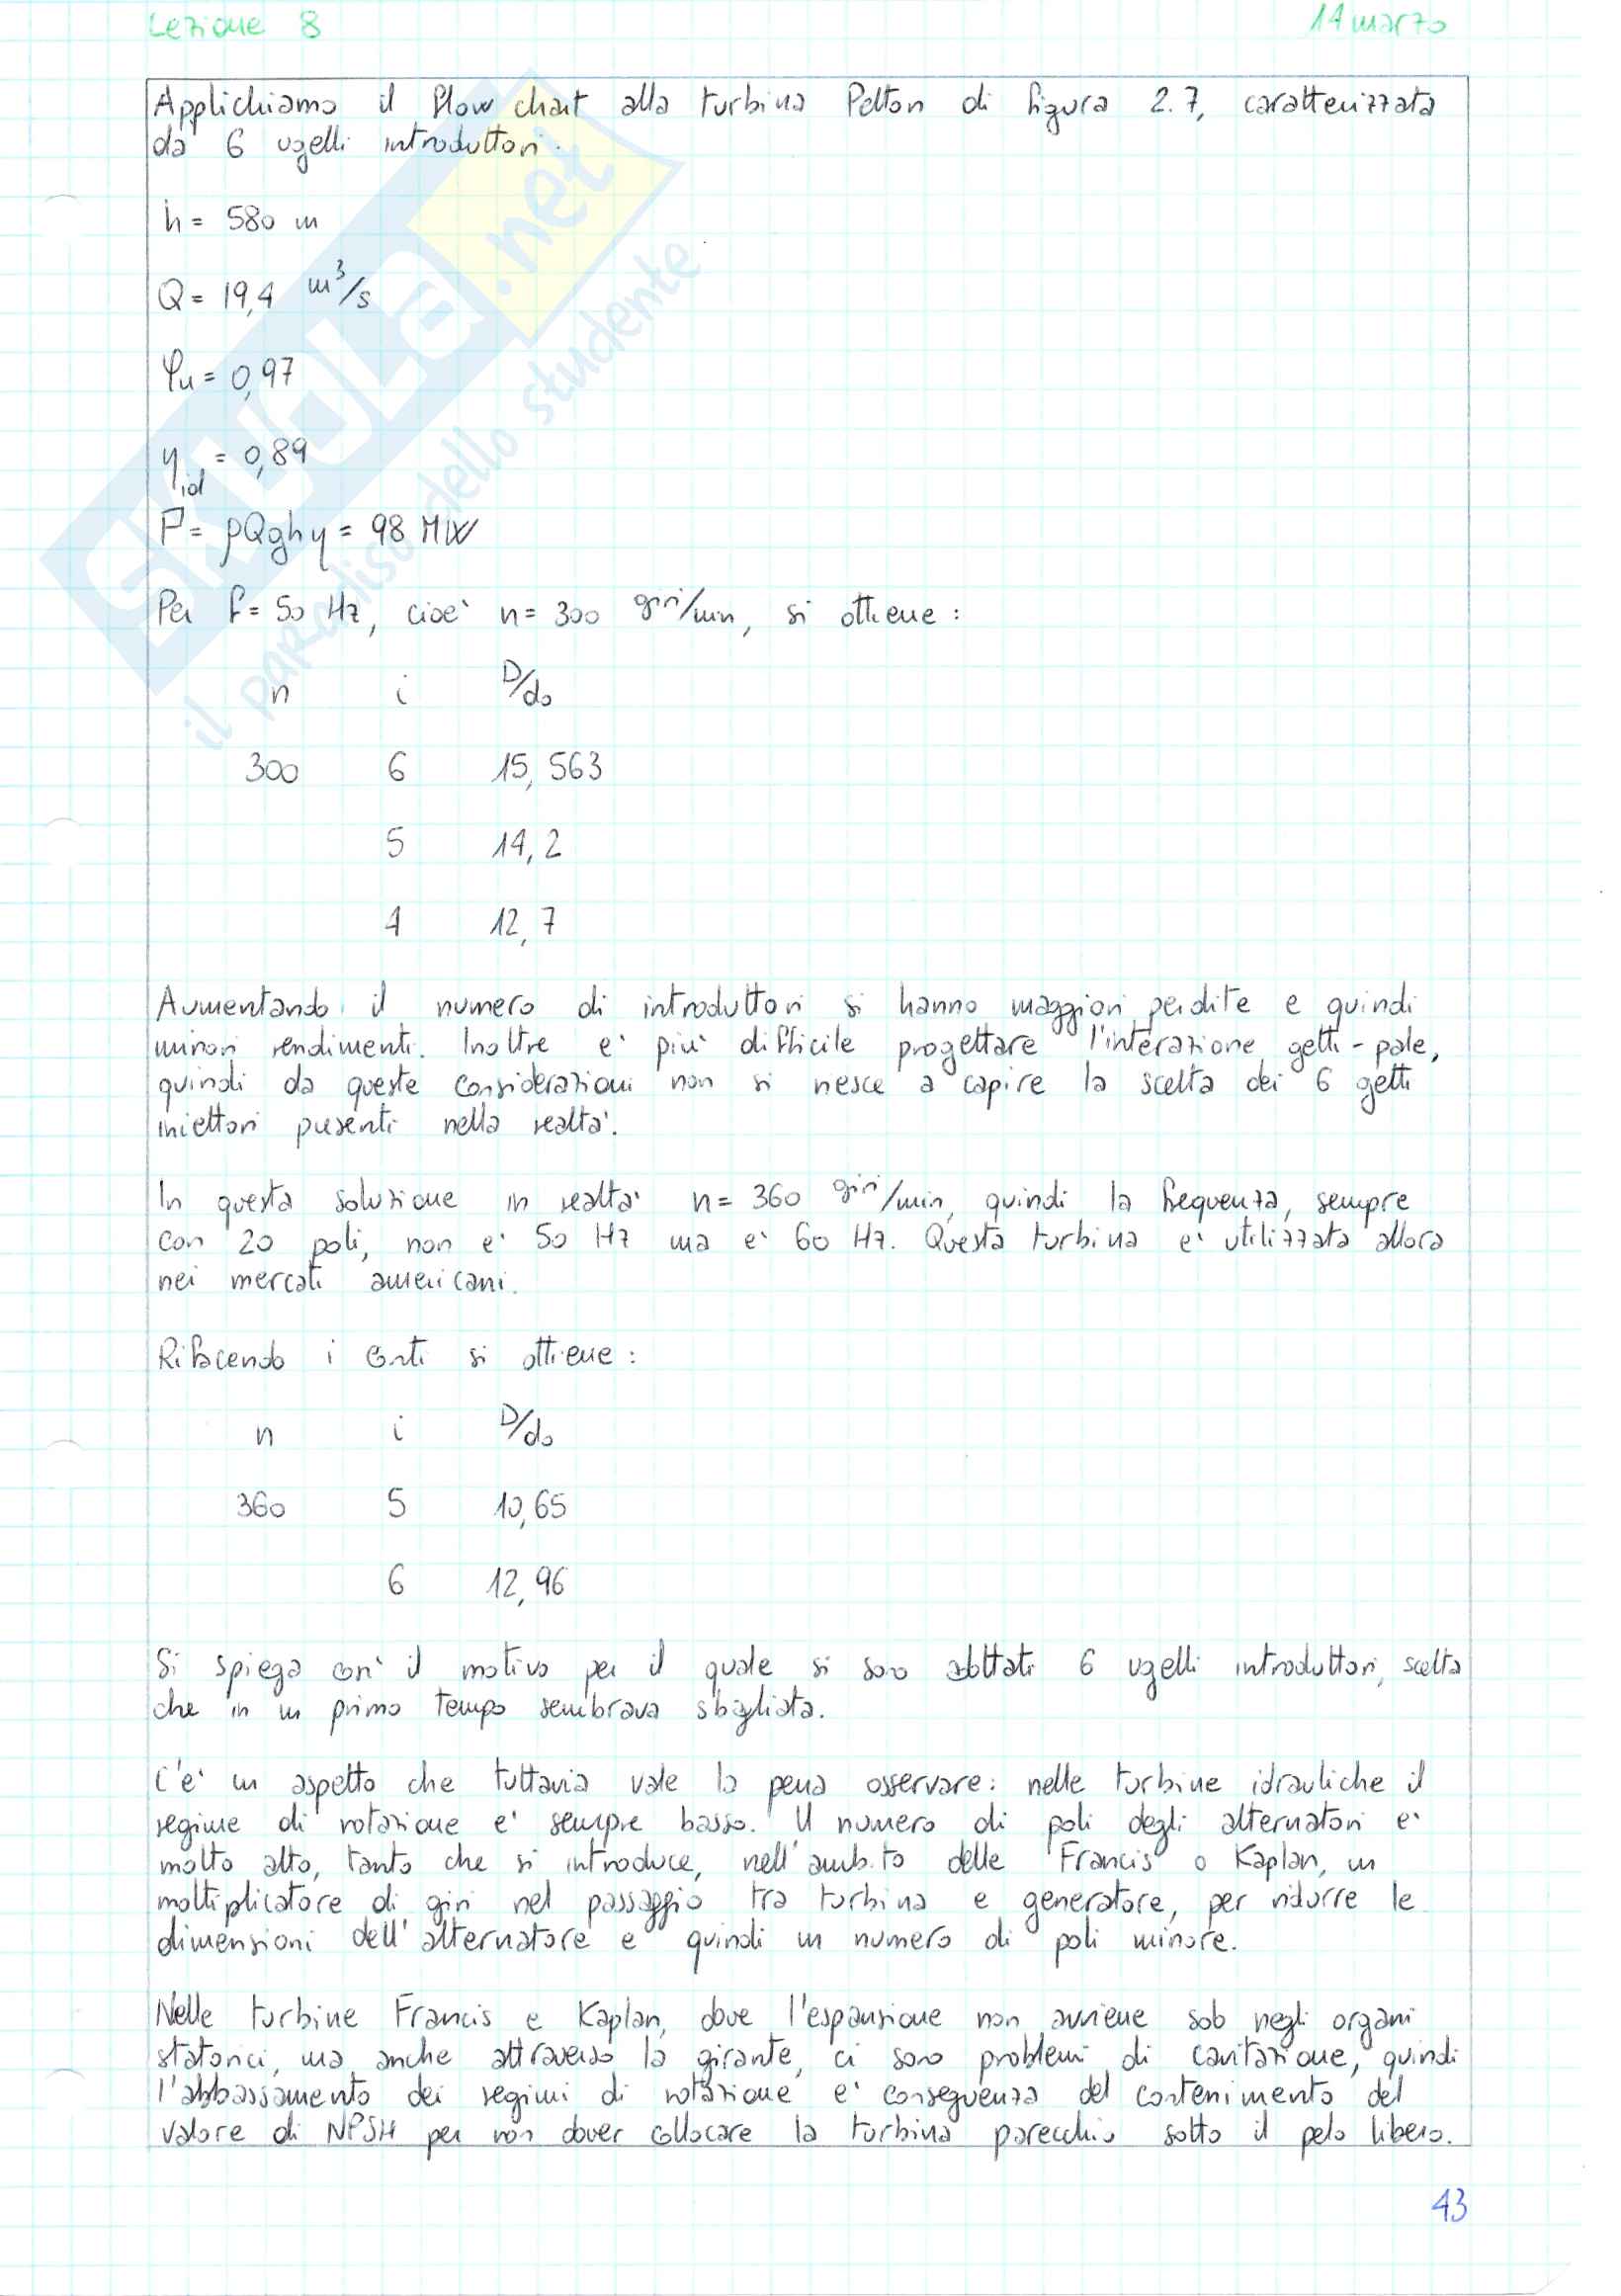 Lezione 8
14 marzo
Applichiamo il flow chart alla turbina Pelton di figura 2.7, caratterizzata
da 6 ugelli introduttori.
h = 580 m
Q = 19,4 m³/s
φu = 0,97
ηid = 0,89
P = ρQghη = 98 MW
Per f = 50 Hz, cioè n = 300 giri/min, si ottiene :
n i D/do
300 6 15,563
5 14,2
4 12,7
Aumentando il numero di introduttori si hanno maggiori perdite e quindi
minori rendimenti. Inoltre è più difficile progettare l'interazione getti-pale,
quindi da queste considerazioni non si riesce a capire la scelta dei 6 getti
iniettori presenti nella realtà.
In questa soluzione in realtà n = 360 giri/min, quindi la frequenza, sempre
con 20 poli, non è 50 Hz ma è 60 Hz. Questa turbina è utilizzata allora
nei mercati americani.
Rifacendo i conti si ottiene :
n i D/do
360 5 10,65
6 12,96
Si spiega così il motivo per il quale si sono adottati 6 ugelli introduttori, scelta
che in un primo tempo sembrava sbagliata.
C'è un aspetto che tuttavia vale la pena osservare: nelle turbine idrauliche il
regime di rotazione è sempre basso. Il numero di poli degli alternatori è
molto alto, tanto che si introduce, nell'ambito delle Francis o Kaplan, un
moltiplicatore di giri nel passaggio tra turbina e generatore, per ridurre le
dimensioni dell'alternatore e quindi un numero di poli minore.
Nelle turbine Francis e Kaplan, dove l'espansione non avviene solo negli organi
statorici, ma anche attraverso la girante, ci sono problemi di cavitazione, quindi
l'abbassamento dei regimi di rotazione è conseguenza del contenimento del
valore di NPSH per non dover collocare la turbina parecchio sotto il pelo libero.
43
SKUOLA.net
il paradiso dello studente